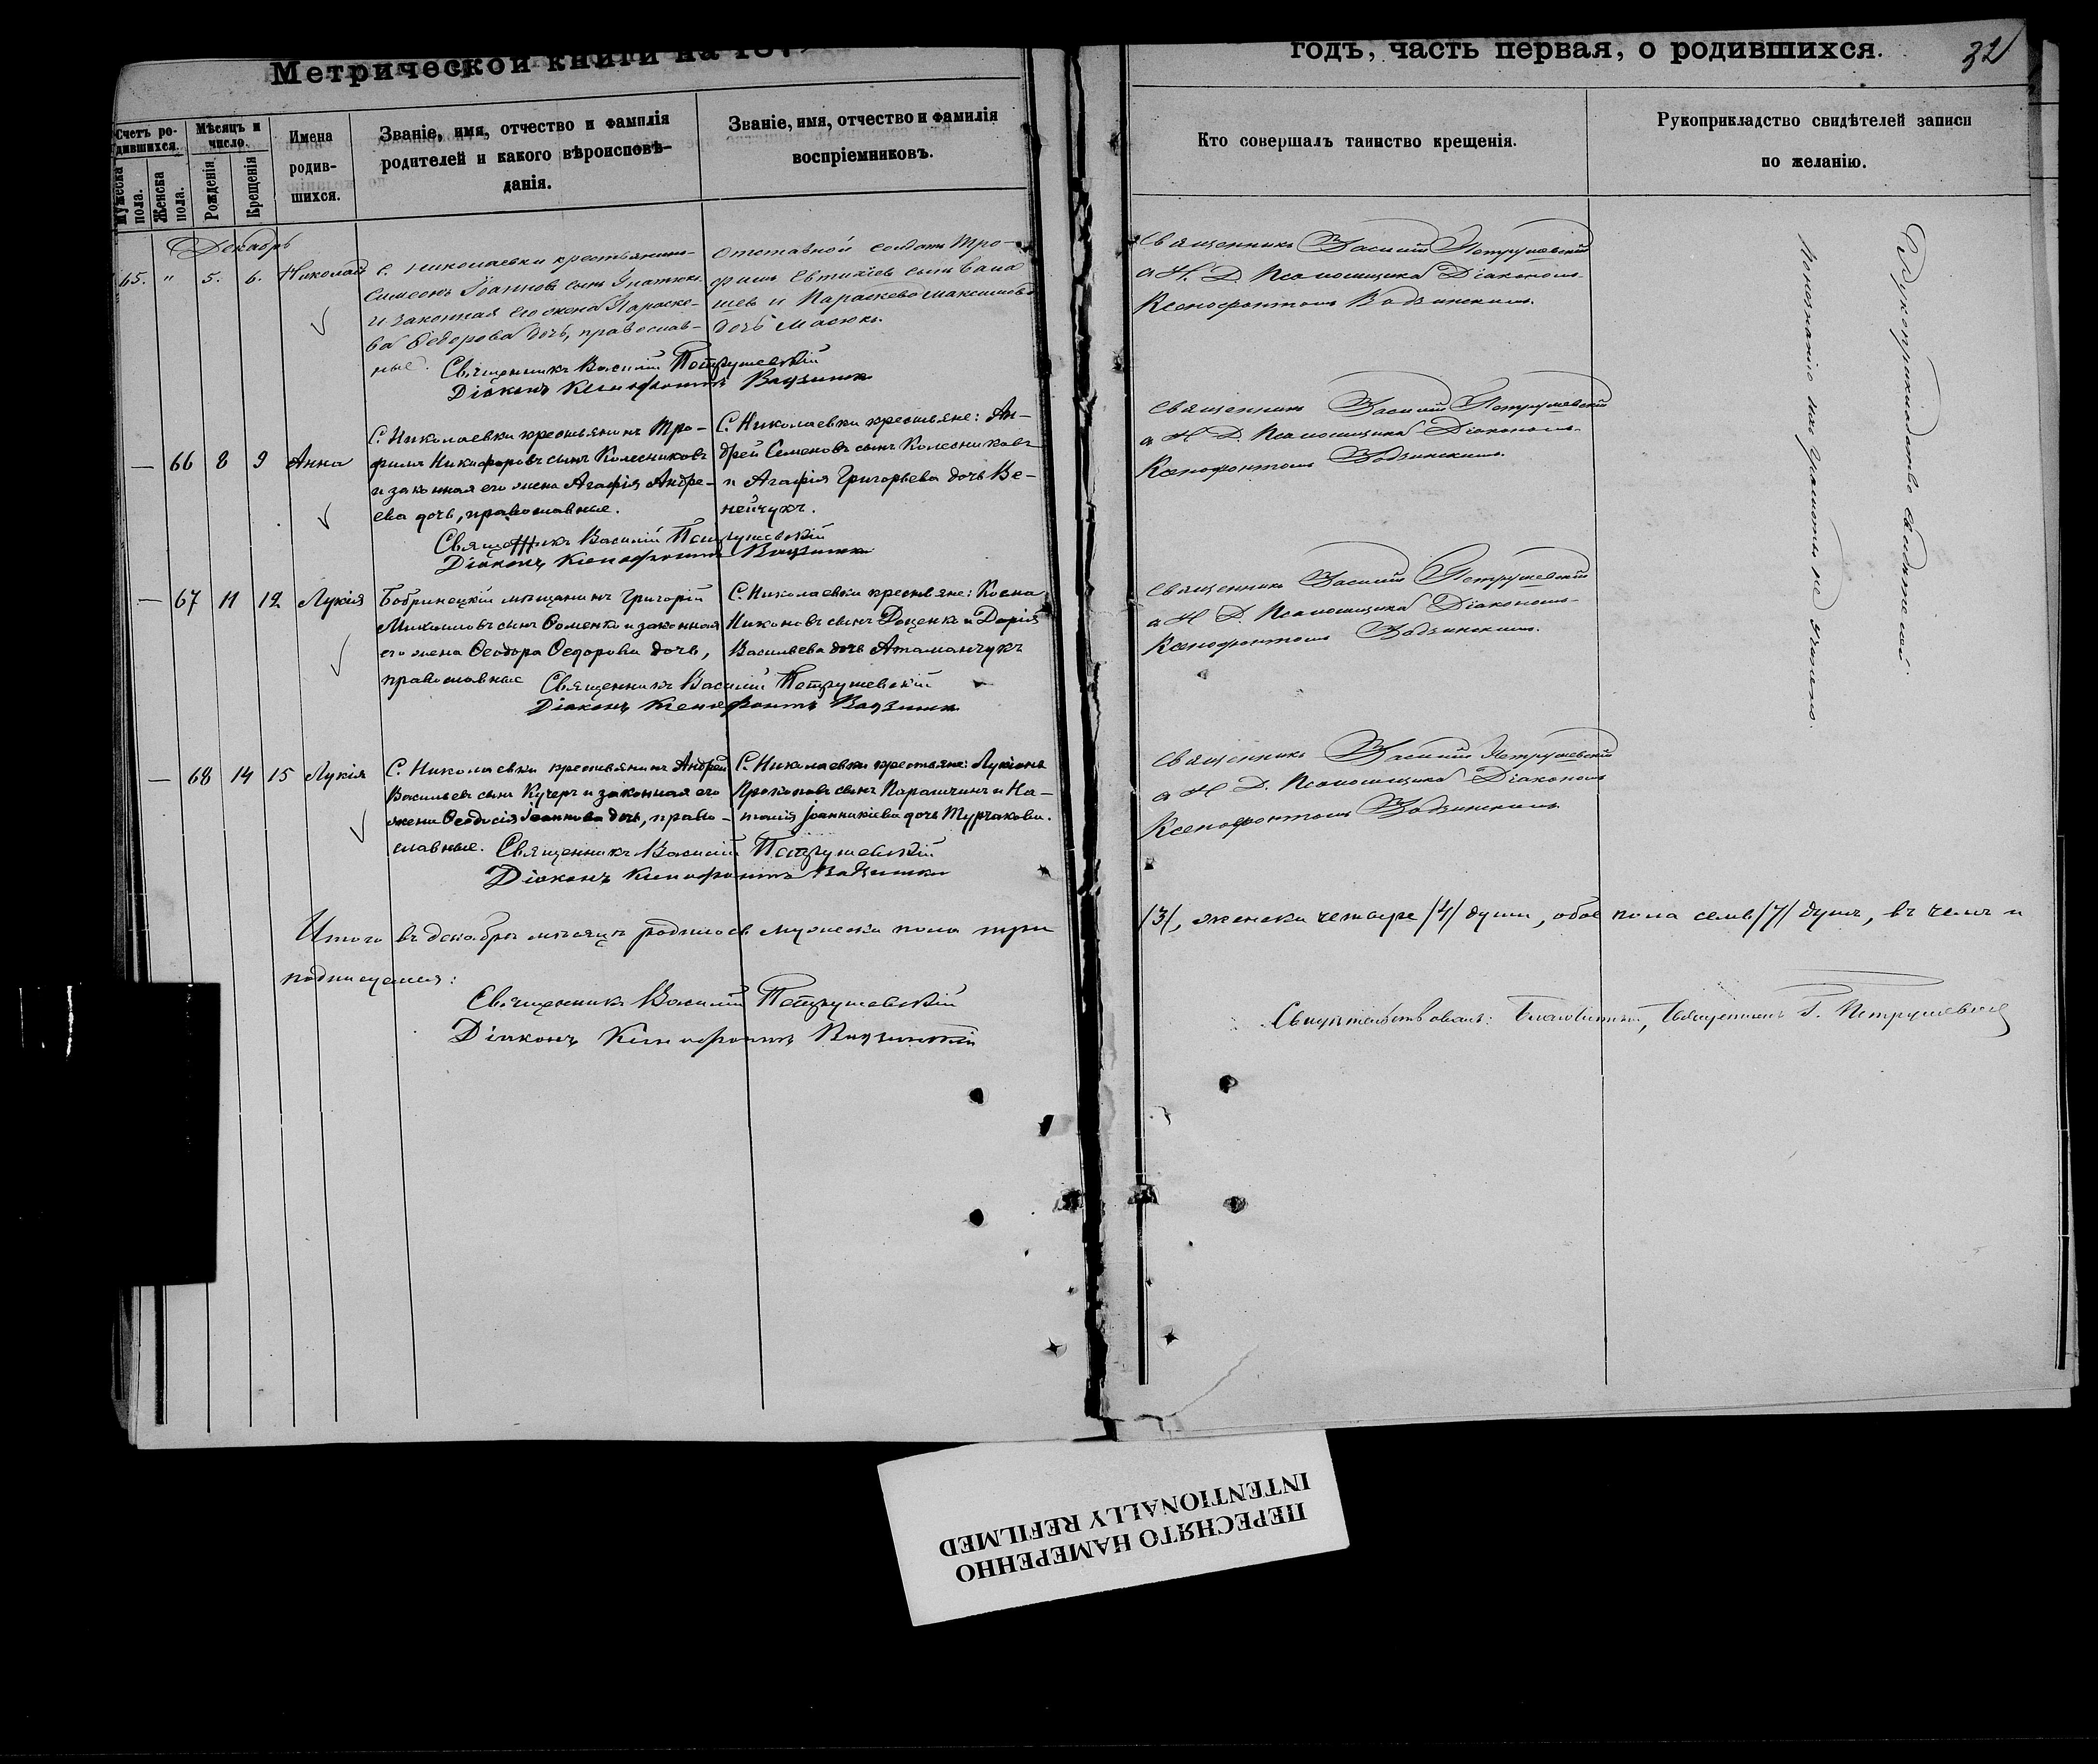 Метрической книги на 187
годъ, часть первая, о родившихся.
32
Счетъ ро-
дившихся.
Мужеска
пола.
Женска
пола.
Мѣсяцъ и
число.
Рожденія
Крещенія
Имена
родив-
шихся.
Званіе, имя, отчество и фамилія
родителей и какого вѣроисповѣ-
данія.
Званіе, имя, отчество и фамилія
воспріемниковъ.
Кто совершалъ таинство крещенія.
Рукоприкладство свидѣтелей записи
по желанію.
Декабрь
65. " 5. 6. Николай
С. Николаевки крестьянинъ
Симеонъ Іоанновъ сынъ Игнатюкъ
и законная его жена Параске-
ва Ѳедорова дочь, православ-
ные.
отставной солдатъ Тро-
фимъ Евтихіевъ сынъ
и Параскева Максимова
дочь Масюкъ.
Священникъ Василій Петрушевскій
Діаконъ Ксенофонтъ Вадзинск
Священникъ Василій Петрушевскій
а И. Д. Псаломщика Діакономъ
Ксенофонтомъ Вадзинскимъ.
— 66 8 9 Анна
С. Николаевки крестьянинъ Тро-
фимъ Никифоровъ сынъ Колесниковъ
и законная его жена Агафія Андре-
ева дочь, православные.
С. Николаевки крестьяне: Ан-
дрей Семеновъ сынъ Колесниковъ
и Агафія Григорьева дочь Ве-
нейчукъ.
Священникъ Василій Петрушевскій
Діаконъ Ксенофонтъ Вадзинск
Священникъ Василій Петрушевскій
а И. Д. Псаломщика Діакономъ
Ксенофонтомъ Вадзинскимъ.
— 67 11 12 Лукія
Бобринецкій мѣщанинъ Григорій
Михаиловъ сынъ Фоменко и законная
его жена Ѳеодора Ѳедорова дочь,
православные
С. Николаевки крестьяне: Косма
Никоновъ сынъ Доценко и Дарія
Васильева дочь Атаманчукъ
Священникъ Василій Петрушевскій
Діаконъ Ксенофонтъ Вадзинск
Священникъ Василій Петрушевскій
а И. Д. Псаломщика Діакономъ
Ксенофонтомъ Вадзинскимъ.
— 68 14 15 Лукія
С. Николаевки крестьянинъ Андрей
Васильевъ сынъ Кучеръ и законная его
жена Ѳеодосія Іоаннова дочь, право-
славные.
С. Николаевки крестьяне: Лукіанъ
Прокоповъ сынъ Паращинъ и На-
талія Іоанникіева дочь Турчакова.
Священникъ Василій Петрушевскій
Діаконъ Ксенофонтъ Вадзинск
Священникъ Василій Петрушевскій
а И. Д. Псаломщика Діакономъ
Ксенофонтомъ Вадзинскимъ
Рукоприкладство свидѣтелей
по незнанію ими грамоты не учинено.
Итого въ декабрѣ мѣсяцѣ родилось мужеска пола три
/3/, женска четыре /4/ души, обое пола семь /7/ душъ, въ чемъ и
подписуемся:
Священникъ Василій Петрушевскій
Діаконъ Ксенофонтъ Вадзинскій
Свидѣтельствовалъ: Благочинный, Священникъ Г. Петрушевскій
ПЕРЕСНЯТО НАМЕРЕННО
INTENTIONALLY REFILMED